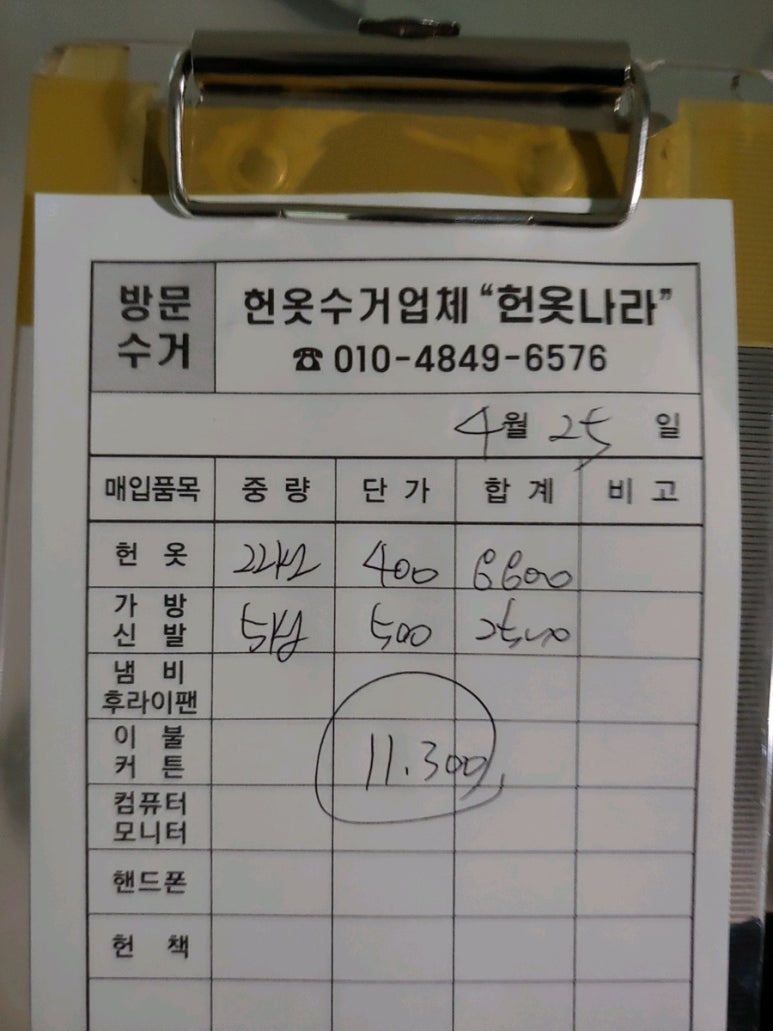 방문 수거
헌옷수거업체 “헌옷나라”
☎ 010-4849-6576
4월 25 일
매입품목 중 량 단 가 합 계 비 고
헌 옷 22kg 400
가 방 신 발 5kg 500
냄 비 후라이팬
이 불 커 튼
11.300
컴퓨터 모니터
핸드폰
헌 책